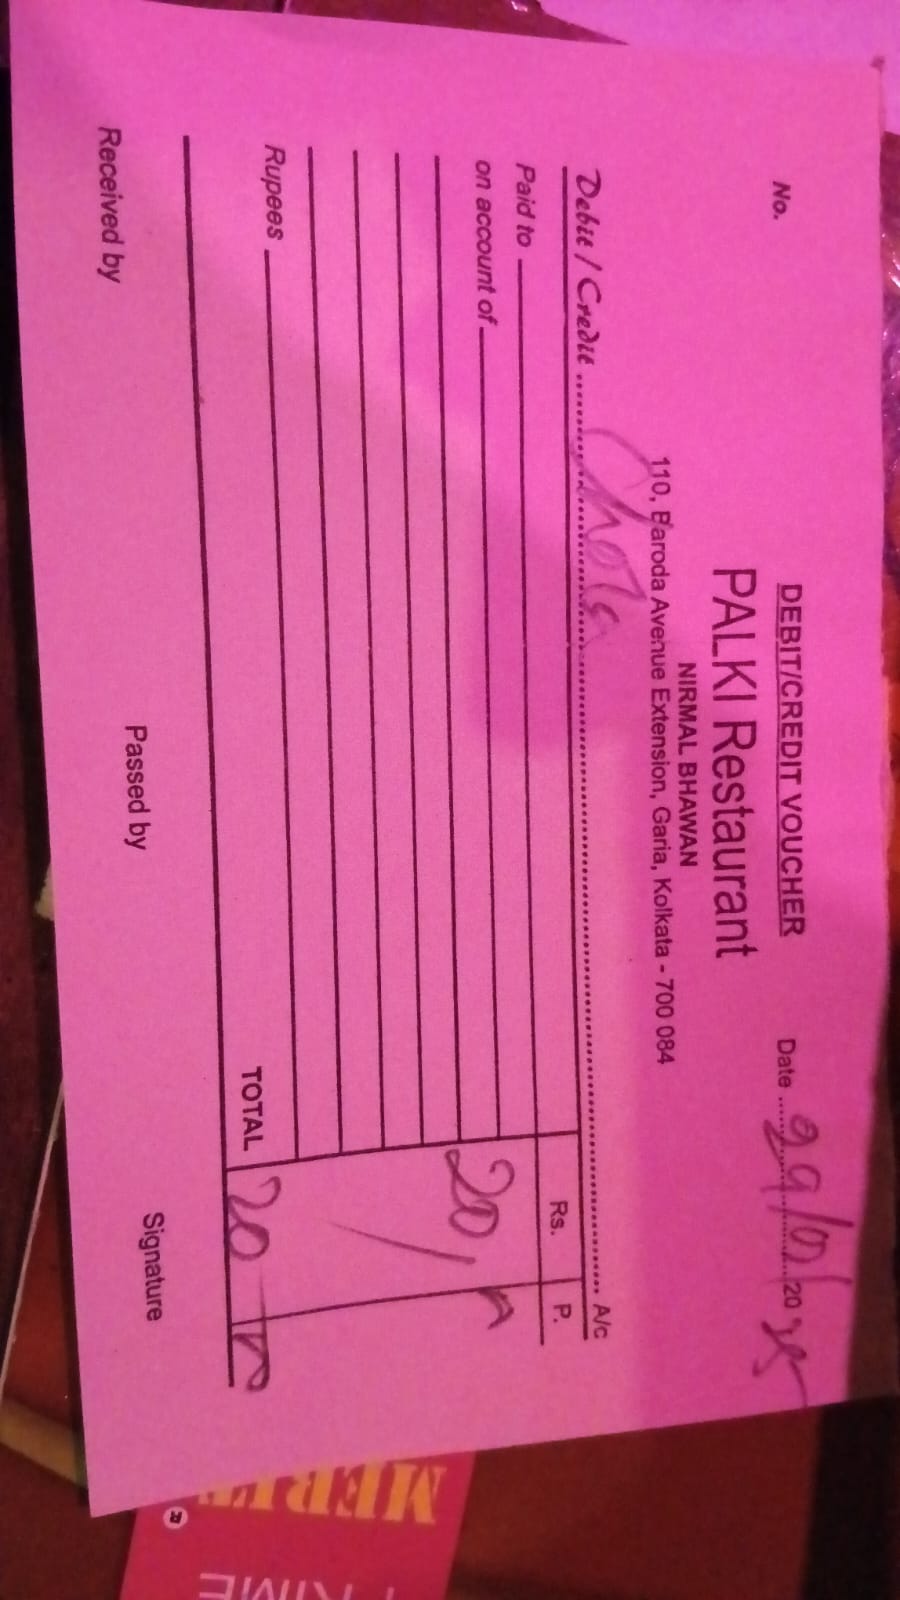 DEBIT/CREDIT VOUCHER
No.
Date 29/01/2025
PALKI Restaurant
NIRMAL BHAWAN
110, Baroda Avenue Extension, Garia, Kolkata - 700 084
Debit / Credit ........ A/c
Paid to
Rs. P.
on account of
20/
Rupees
TOTAL 20
Received by
Passed by
Signature
MERIT
R
PRIME